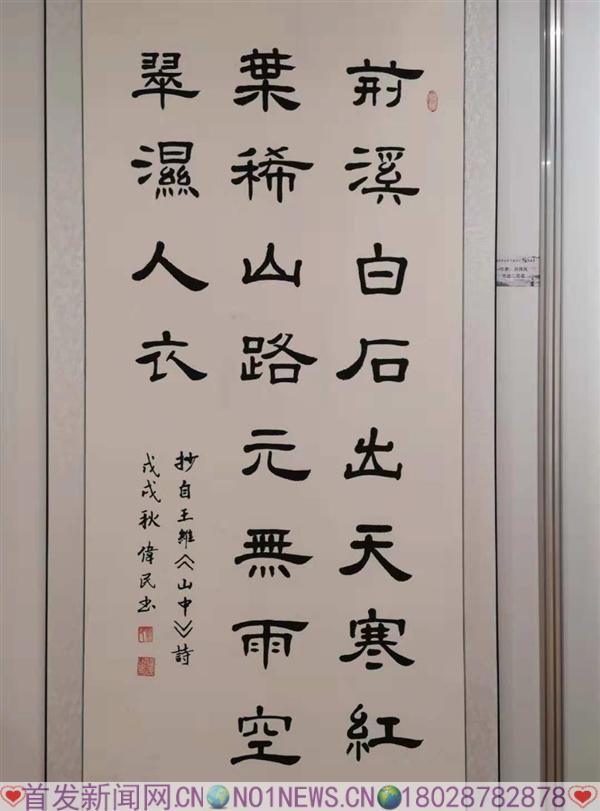 荊溪白石出天寒紅
葉稀山路元無雨空
翠濕人衣
抄自王維《山中》詩
戊戌秋 偉民书
首发新闻网.CN NO1NEWS.CN 18028782878